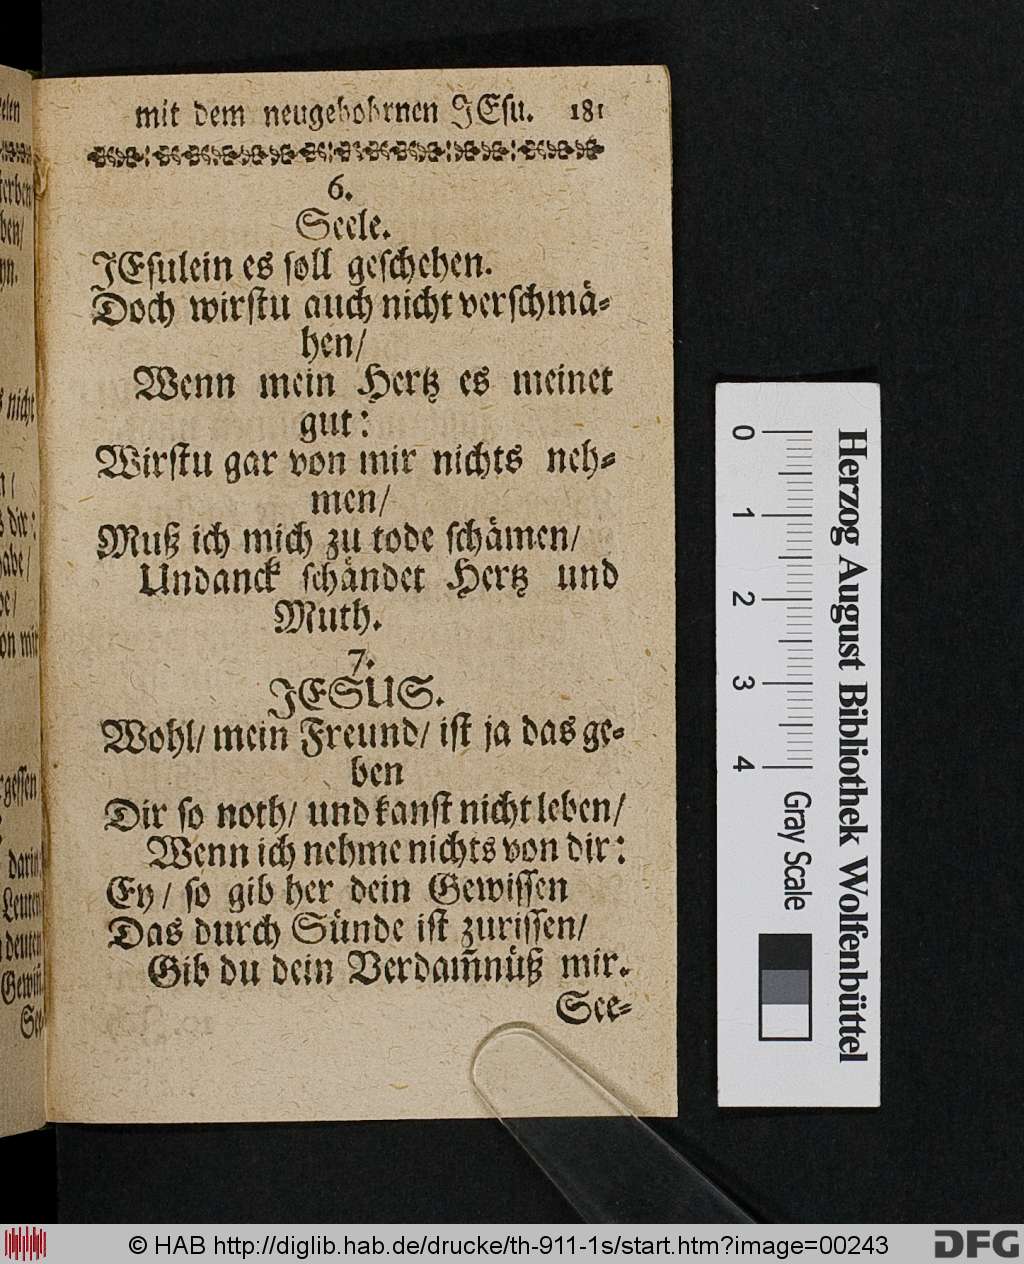 mit dem neugebohrnen JEsu. 181
6.
Seele.
JEsulein es soll geschehen.
Doch wirstu auch nicht verschmä-
hen/
Wenn mein Hertz es meinet
gut:
Wirstu gar von mir nichts neh-
men/
Muß ich mich zu tode schämen/
Undanck schändet Hertz und
Muth.
7.
JESUS.
Wohl/ mein Freund/ ist ja das ge-
ben
Dir so noth/ und kanst nicht leben/
Wenn ich nehme nichts von dir:
Ey/ so gib her dein Gewissen
Das durch Sünde ist zurissen/
Gib du dein Verdam̄nüß mir.
See-
nicht
s dir:
habe/
on mir
darin
Leuten
deuten
See
0
1
2
3
4
Gray Scale
Herzog August Bibliothek Wolfenbüttel
© HAB http://diglib.hab.de/drucke/th-911-1s/start.htm?image=00243
DFG